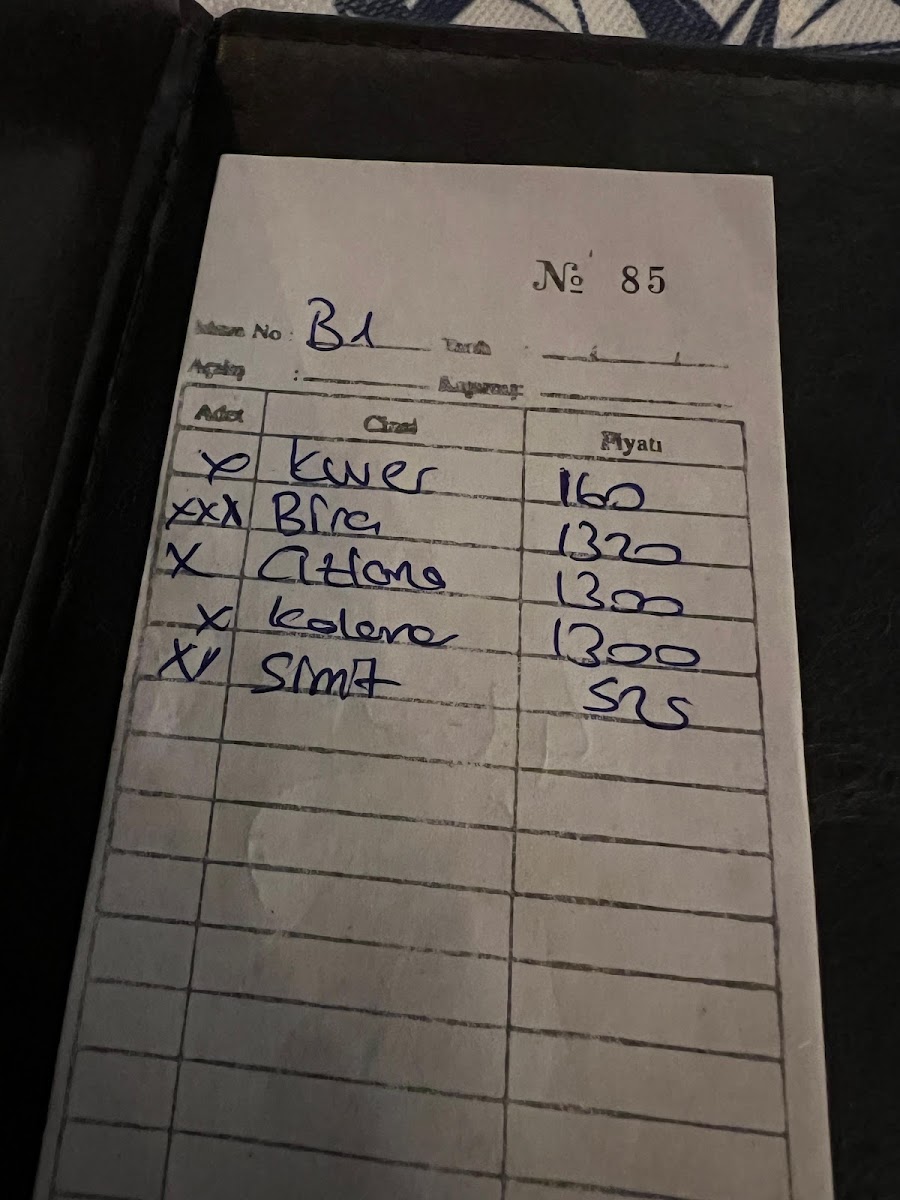 № 85
Masa No : B1 Tarih :
Açılış : Kapanış :
Adet Cinsi Fiyatı
x kuver 160
xxx Bira 1320
x atlana 1300
x kalava 1300
x/ 525